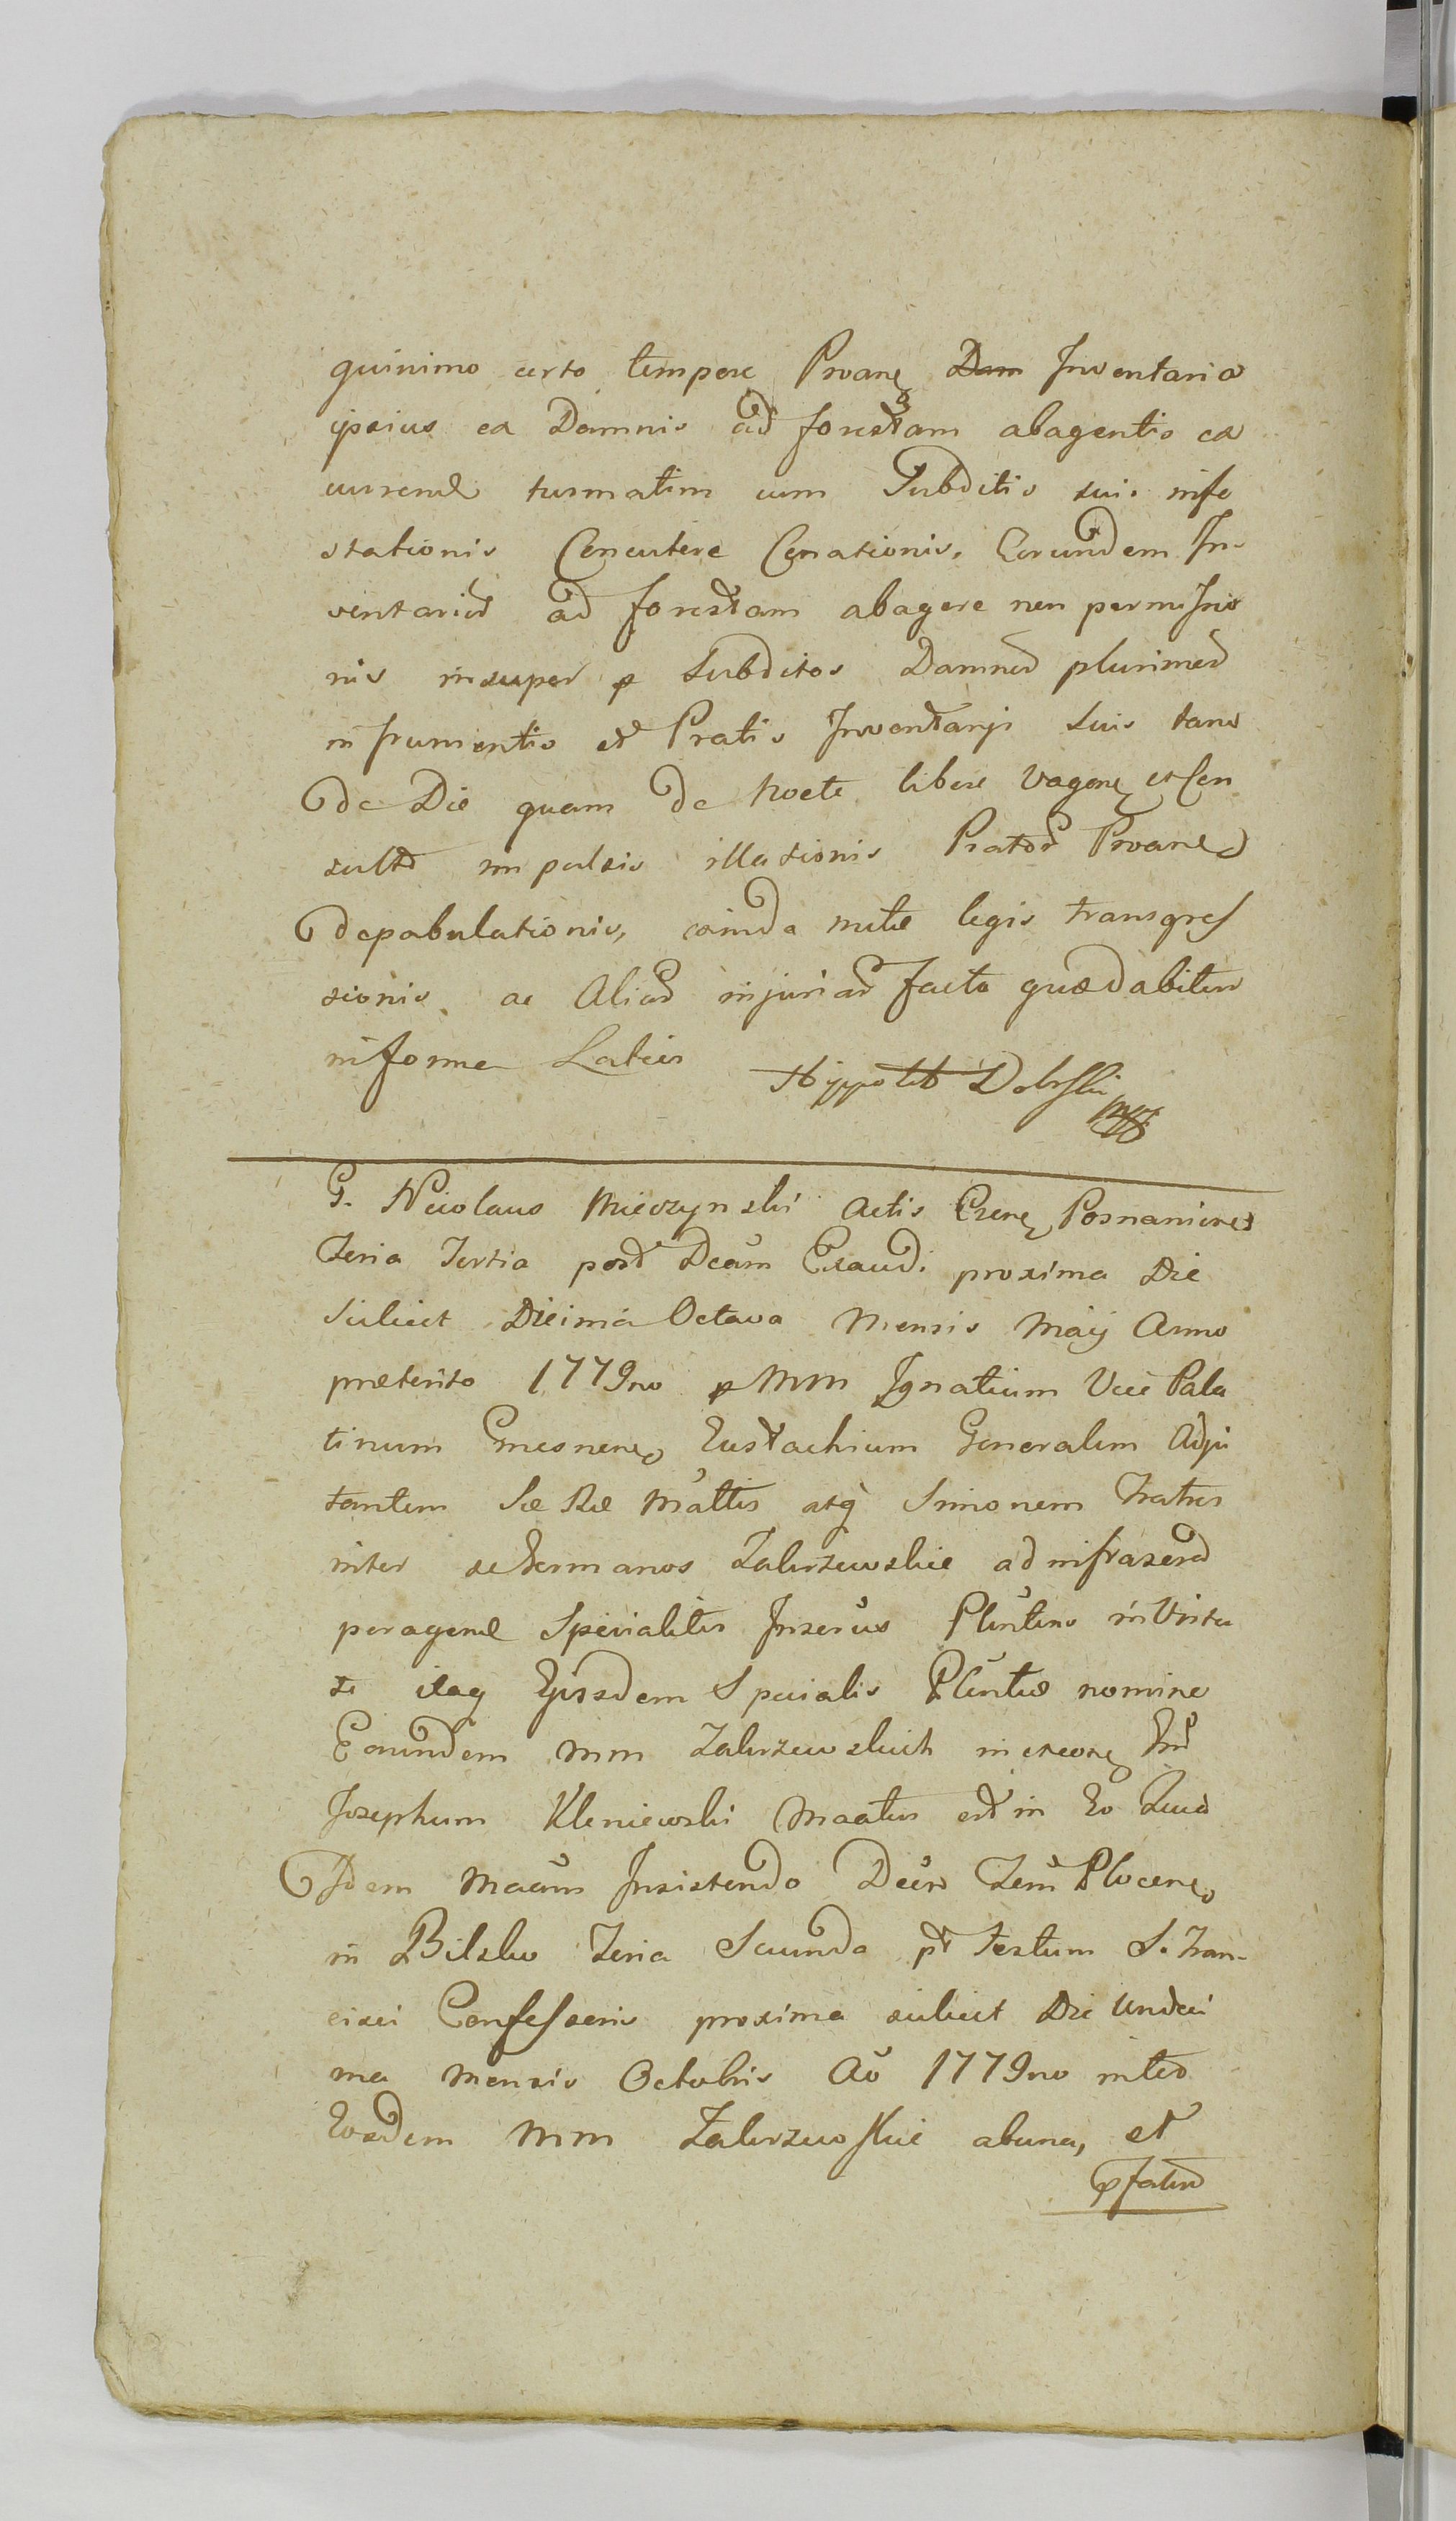 quinimo certo tempore Pwane Dam Inventaria
ipsius ex Damnis ad forestam abagentis ex
currend turmatim cum Subditis suis infe
stationis Concutere Conationis, Eorundem In-
ventariū ad forestam abagere non permissio
nis insuper p Subditos Damnū plurimū
in frumentis et Pratis Inventarji suis tam
de Die quam de Nocte libere vagare et Con
sulto impulsis illationis Pratorū Pwane
depabulationis, exinde mutue legis transgres
sionis ac Aliarū injuriarū facta quæ dabitur
in forma Latius Hippolit Dobrski
mpp
G. Nicolaus Mieczynski Actis Csrene Posnanienes
Feria Tertia post Dcam Exaudi proxima Die
scilicet Decima Octava Mensis Maij Anno
præterito 1779no p MM Ignatium Vice Pala
tinum Gnesnene, Eustachium Generalem Adju
tantem Sæ Ræ Mattis atq Simonem Fratres
inter se Germanos Zakrzewskie ad infrascrū
peragend Specialiter Inserūs Plentens in Virtu
te itaq Ejusdem Specialis Plentiæ nomine
Eorundem MM Zakrzewskich
Josephum Kleniewski Maatus est in Eo Quod
Idem Maaūs Insistendo Decro Tem Plocene
in Bilsko Feria Secunda pt Festum S. Fran-
cisci Confessoris proxima scilicet Die Undeci
ma Mensis Octobris Ao 1779no inter
Eosdem MM Zakrzewskie ab una, et
pfatū